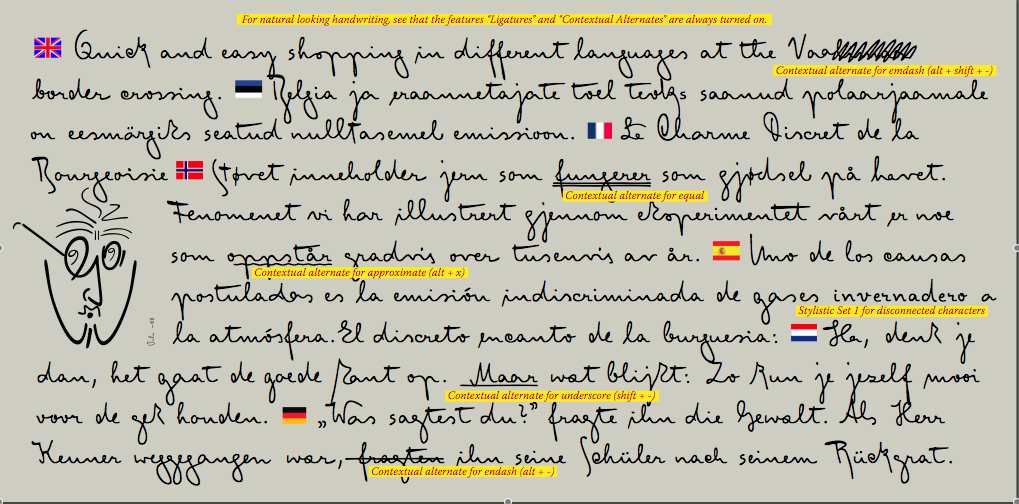 For natural looking handwriting, see that the features "Ligatures" and "Contextual Alternates" are always turned on.
Quick and easy shopping in different languages at the the Vaa
Contextual alternate for emdash (alt + shift + -)
border crossing. Belgia ja eraannetajate toel tevkgs saanud polaarjaamale
on eesmärgiks seatud nulltasemel emissioon. Le Charme Discret de la
Bourgeoisie Støvet inneholder jern som fungerer som gjødsel på havet.
Contextual alternate for equal
Fenomenet vi har illustrert gjennom eksperimentet vårt er noe
som oppstår gradvis over tusenvis av år. Uno de los causas
Contextual alternate for approximate (alt + x)
postuladas es la emisión indiscriminada de gases invernadero a
Stylistic Set 1 for disconnected characters
la atmósfera. El discreto encanto de la burguesia: Ha, denk je
dan, het gaat de goede kant op. Maar wat blijkt: Zo kun je jezelf mooi
Contextual alternate for underscore (shift + -)
voor de gek houden. „Was sagtest du?" fragte ihn die Gewalt. Als Herr
Keuner weggegangen war, fragten ihn seine Schüler nach seinem Rückgrat.
Contextual alternate for endash (alt + -)